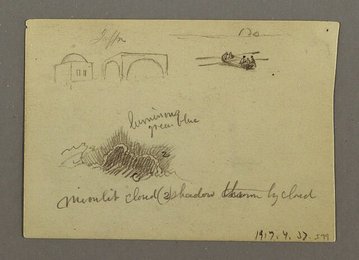 Jaffa
Do
luminous
green blue
2
moonlit cloud (2) shadow thrown by cloud
1917. 4. 37.